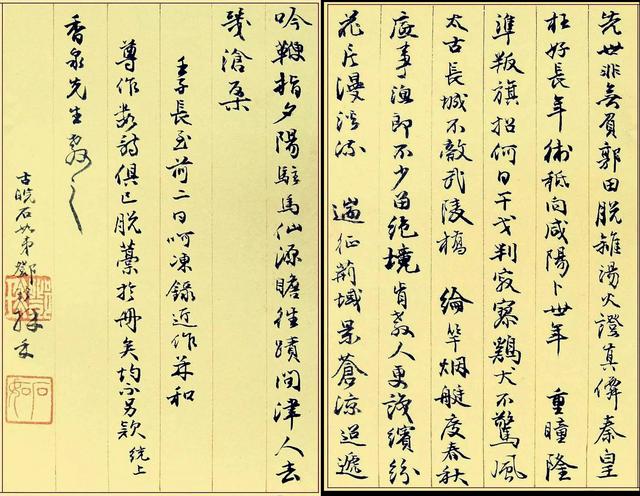 先世非無負郭田脫離湯火證真僊秦皇
枉好長年術祗向咸陽卜世年 重瞳隆
準叛旗招何日干戈判寂寥鷄犬不驚風
太古長城不敵武陵橋 綸竿烟艇度春秋
底事漁郎不少留絕境肯教人更誤繽紛
花片漫隨流 遄征荊域景蒼涼迢遞
吟鞭指夕陽駐馬仙源瞻往蹟問津人去
幾滄桑
壬子長至前二日呵凍錄近作並和
尊作數詩俱已脫藁於冊矣均不另款 統上
香泉先生教之
古皖石如弟鄧
石如